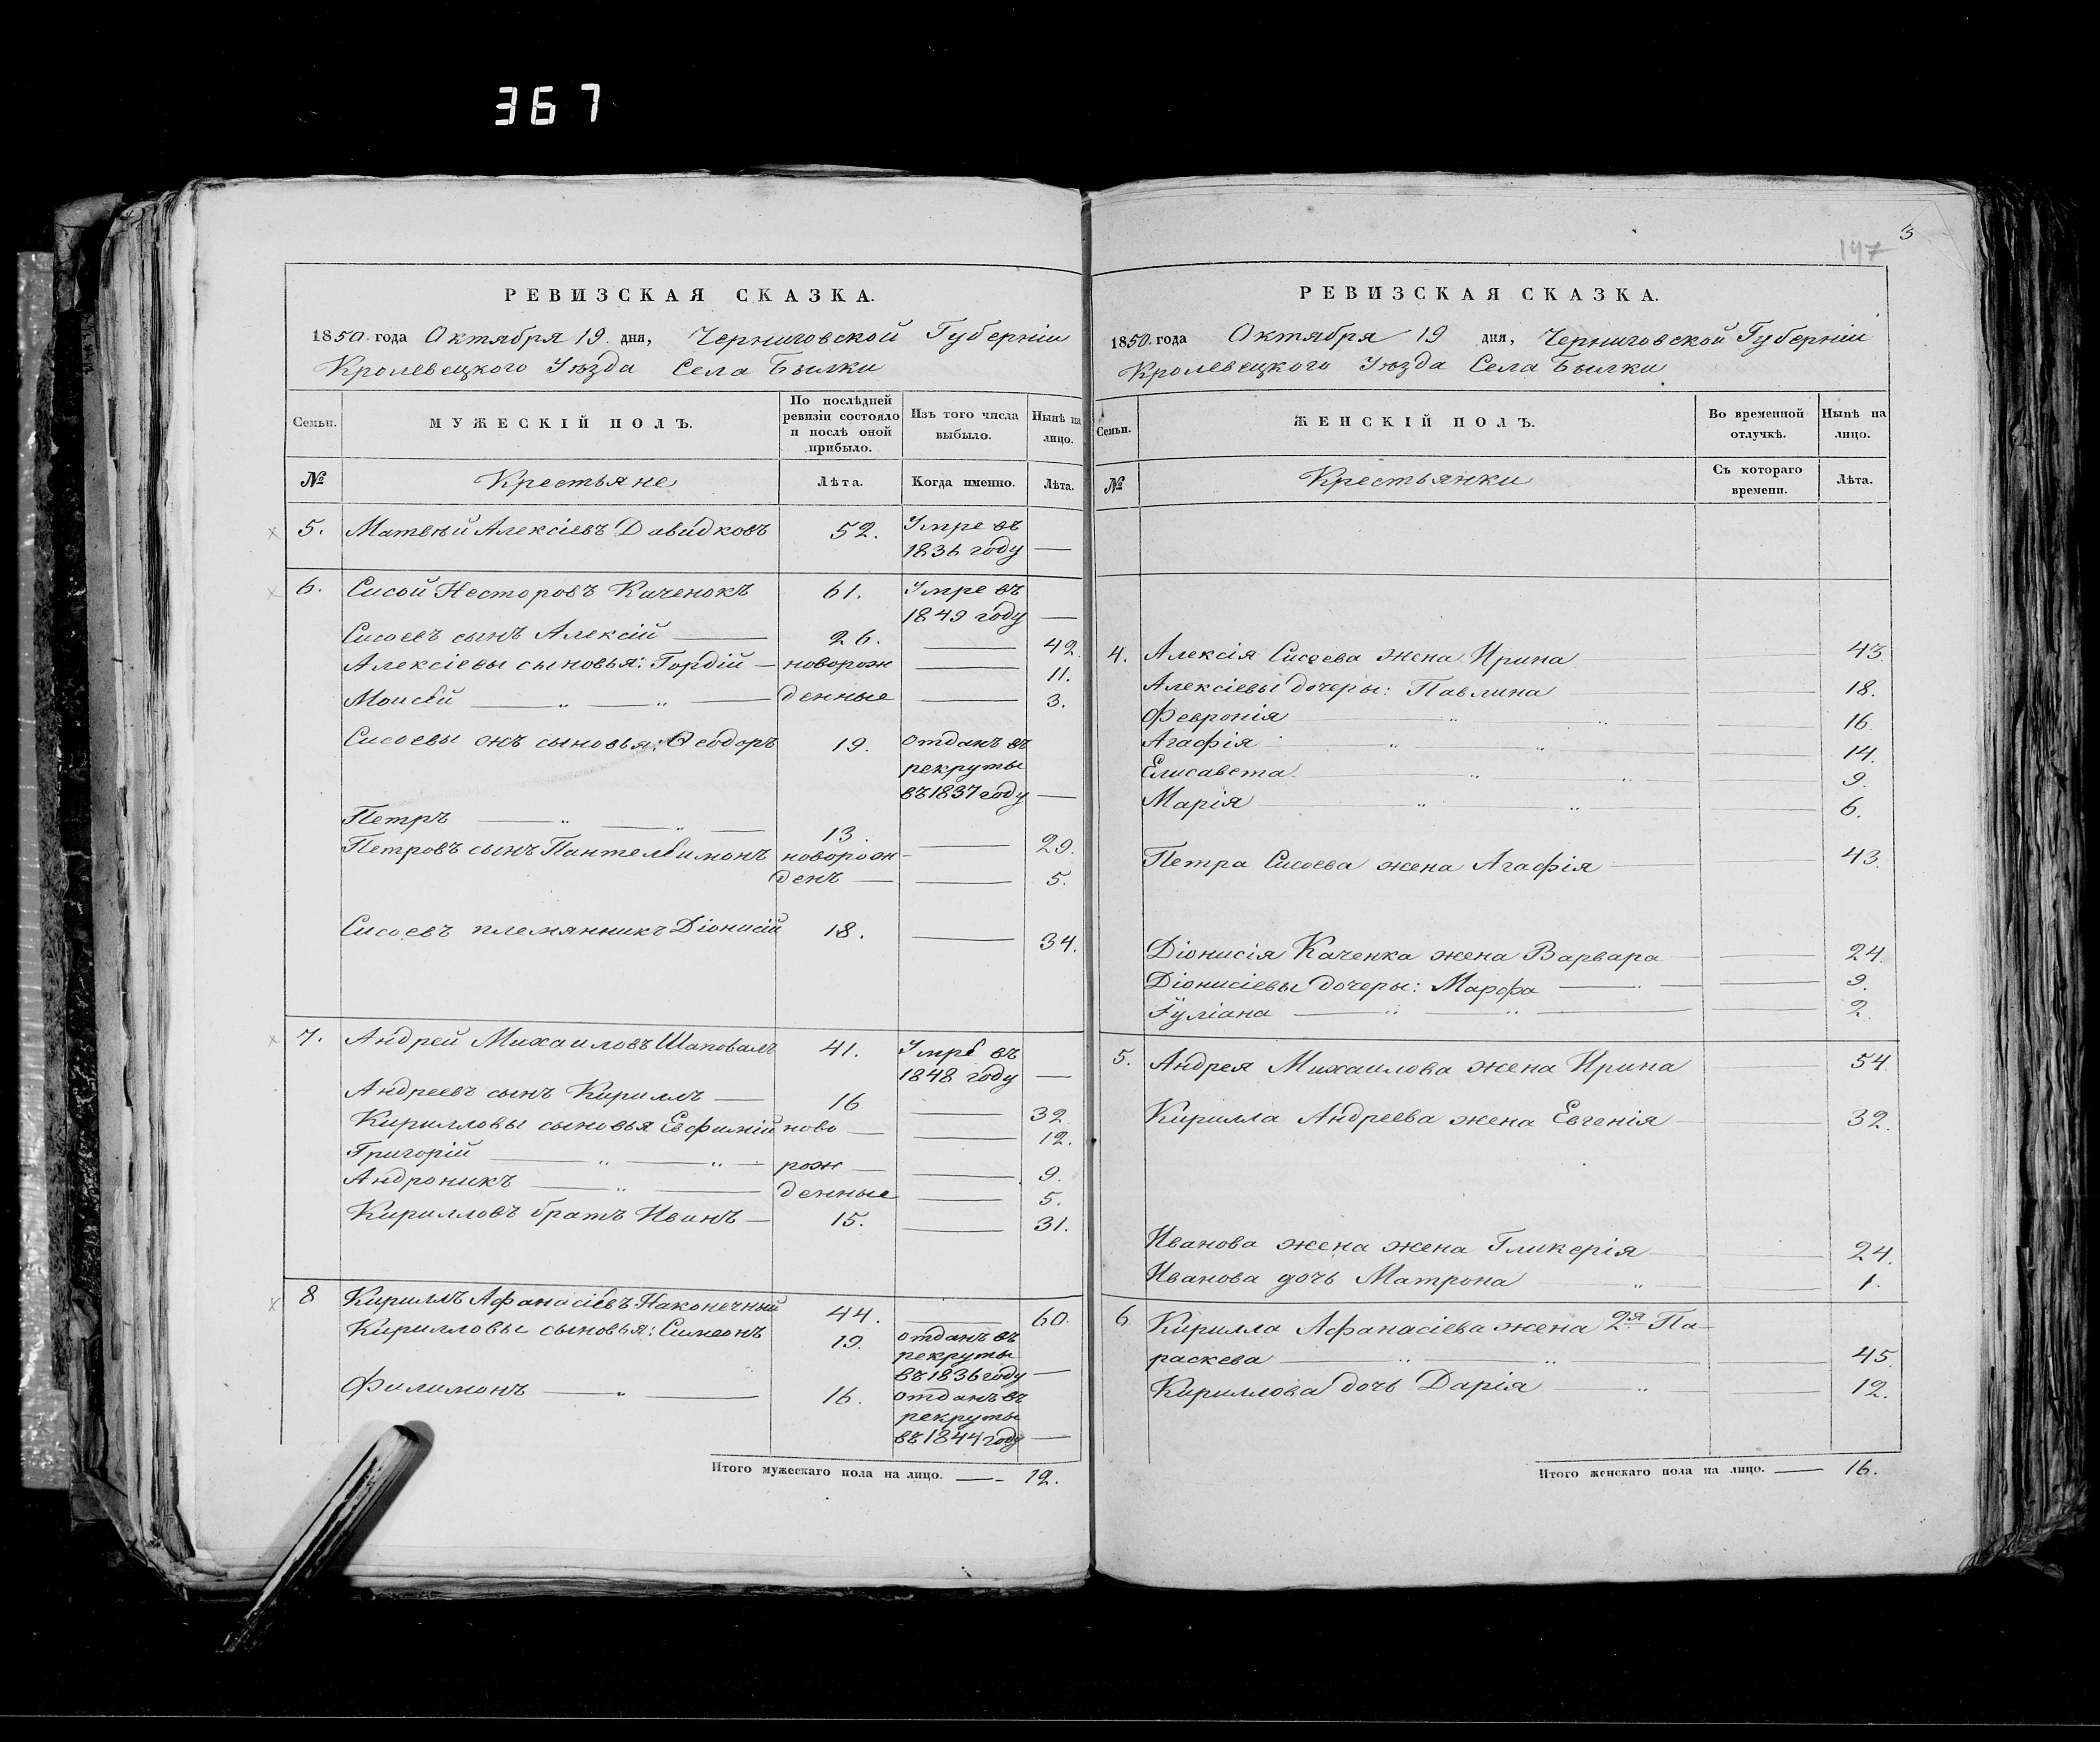 367
РЕВИЗСКАЯ СКАЗКА.
1850. года Октября 19. дня, Черниговской Губерніи
Кролевецкого Уѣзда Села Былки
Семьи.
МУЖЕСКІЙ ПОЛЪ.
По послѣдней ревизіи состояло и послѣ оной прибыло.
Изъ того числа выбыло.
Нынѣ на лицо.
№
Крестьяне
Лѣта.
Когда именно.
Лѣта.
5. Матвѣй Алексіевъ Давидковъ 52. Умре въ
1836 году —
6. Сисой Несторовъ Каченокъ 61. Умре въ
1849 году —
Сисоевъ сынъ Алексій — 26. — 42.
Алексіевы сыновья: Гордій — новорож — 11.
Моисей — „ — „ — денные — 3.
Сисоевы жъ сыновья: Ѳеодоръ 19. отданъ въ
рекруты
въ 1837 году —
Петръ — „ — „ — 13. — 29.
Петровъ сынъ Пантелеимонъ новорож-
денъ — — 5.
Сисоевъ племянникъ Діонисій 18. — 34.
7. Андрей Михаиловъ Шаповалъ 41. Умре въ
1848 году —
Андреевъ сынъ Кириллъ — 16 — 32.
Кирилловы сыновья Евфимій ново — — 12.
Григорій — „ — „ — рож — — 9.
Андроникъ — „ — денные — 5.
Кирилловъ братъ Иванъ — 15. — 31.
8 Кириллъ Афанасіевъ Наконечный 44. — 60.
Кирилловы сыновья: Симеонъ 19. отданъ въ
рекруты
въ 1836 году —
Филимонъ — „ — 16. отданъ въ
рекруты
въ 1844 году —
Итого мужескаго пола на лицо. — 12.
3
147
РЕВИЗСКАЯ СКАЗКА.
1850. года Октября 19 дня, Черниговской Губерніи
Кролевецкого Уѣзда Села Былки
Семьи.
ЖЕНСКІЙ ПОЛЪ.
Во временной отлучкѣ.
Нынѣ на лицо.
№
Крестьянки
Съ котораго времени.
Лѣта.
4. Алексія Сисоева жена Ирина — 43.
Алексіевы дочеры: Павлина — 18.
Февронія „ „ — 16.
Агафія „ „ — 14.
Елисавета „ „ — 9.
Марія „ „ — 6.
Петра Сисоева жена Агафія — 43.
Діонисія Каченка жена Варвара — 24.
Діонисіевы дочеры: Марфа — 9.
Іуліана — „ — „ — 2.
5. Андрея Михаилова жена Ирина — 54.
Кирилла Андреева жена Евгенія — 32.
Иванова жена жена Гликерія — 24.
Иванова дочь Матрона „ — 1.
6. Кирилла Афанасіева жена 2я Па-
раскева — „ — „ — 45.
Кириллова дочь Дарія „ — 12.
Итого женскаго пола на лицо. — 16.